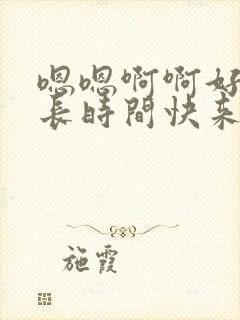 嗯嗯啊啊好
长时間快来
施霞